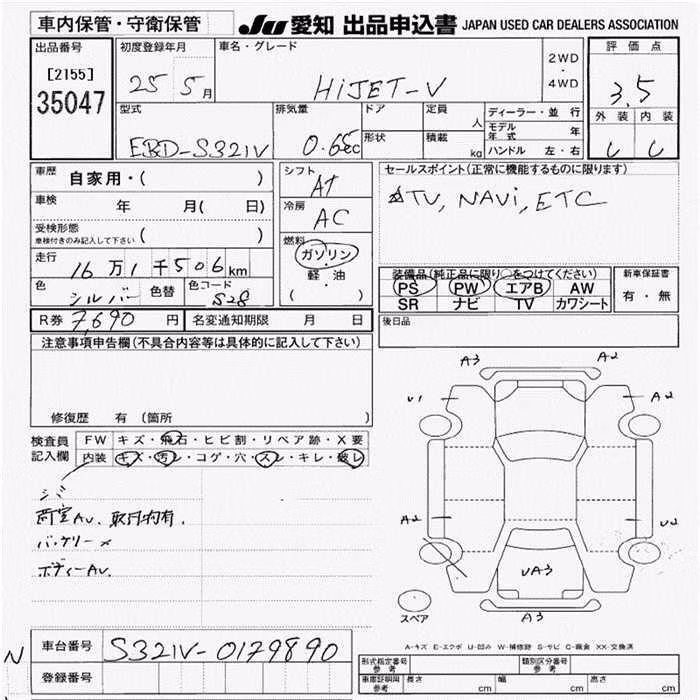 車内保管・守衛保管
JU 愛知 出品申込書 JAPAN USED CAR DEALERS ASSOCIATION
出品番号
[2155]
35047
初度登録年月
25 5月
車名・グレード
HiJET-V
2WD
・
4WD
評価点
3.5
外装 内装
C C
型式
EBD-S321V
排気量
0.66cc
ドア
形状
定員
人
積載
kg
ディーラー・並行
モデル年式 年
ハンドル 左・右
車歴
自家用・( )
車検
年 月( 日)
受検形態
車検付きのみ記入して下さい ( )
走行
16万1千506km
色
シルバー
色替
色コード
S28
R券 7,690 円
名変通知期限 月 日
シフト
AT
冷房
AC
燃料
ガソリン
・
軽・油
( )
セールスポイント(正常に機能するものに限ります)
☆TV, NAVi, ETC
装備品(純正品に限り○をつけてください)
PS PW エアB AW
SR ナビ TV カワシート
新車保証書
有・無
後日品
注意事項申告欄(不具合内容等は具体的に記入して下さい)
修復歴 有 (箇所 )
検査員記入欄
FW キズ・飛石・ヒビ割・リペア跡・X要
内装 キズ・汚レ・コゲ・穴・スレ・キレ・破レ
シミ
荷室AU、取円均有.
バッテリー×
ボディーAU.
A3 A2
U1 A2
A2 U2
UA3
A3
スペア
A-キズ E-エクボ U-凹み W-補修跡 S-サビ C-腐食 XX-交換済
N
車台番号 S321V-0179890
登録番号
型式指定番号 参考
類別区分番号 参考
車庫証明用 参考 長さ cm 幅 cm 高さ cm